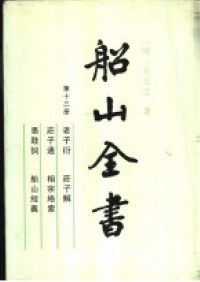 〔明〕王夫之 著
船山全書
第十三册
老子衍 莊子解
莊子通 相宗絡索
愚鼓詞 船山經義